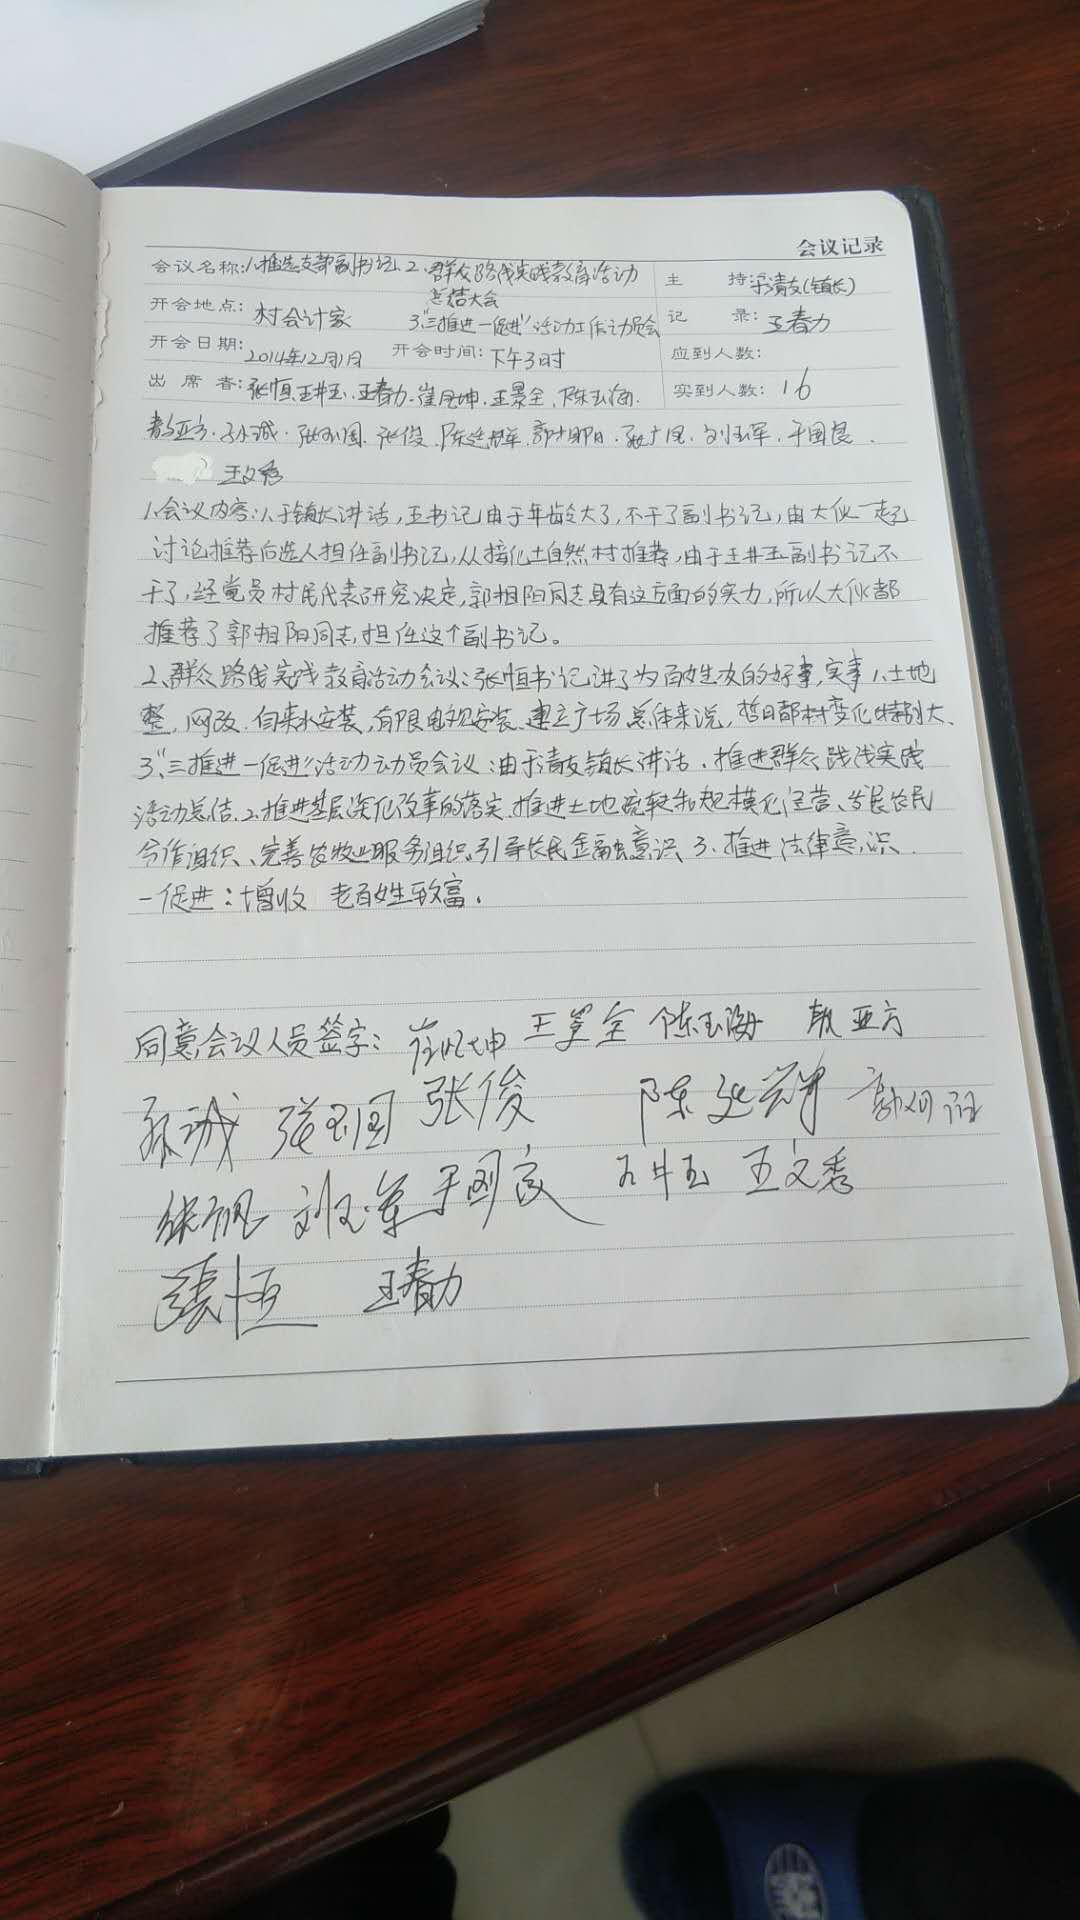 会议记录
会议名称:1、推选支部副书记、2、群众路线实践教育活动 主 持:清友(镇长)
总结大会
开会地点:村会计家 3."三推进一促进"活动工作动员会 记 录:王春力
开会日期:2014年12月1日 开会时间:下午3时 应到人数:
出席者:张恒、王井玉、王春力、崔凤坤、王景全、陈玉海、 实到人数:16
亚方、孙诚、张玉国、张俊、陈延辉、郭相阳、刘玉军、于国良、
王文秀
1、会议内容:1、于镇长讲话,王书记由于年龄大了,不干了副书记,由大伙一起
讨论推荐后选人担任副书记,从自然村推荐,由于王井玉副书记不
干了,经党员村民代表研究决定,郭相阳同志具有这方面的实力,所以大伙都
推荐了郭相阳同志,担任这个副书记。
2、群众路线实践教育活动会议:张恒书记讲了为百姓办的好事,实事1、土地
整,网改、自来水安装,有限电视安装、建立广场总体来说,哲日都村变化特别大、
3、"三推进一促进"活动动员会议:由于清友镇长讲话、推进群众路线实践
活动总结、2、推进基层深化改革的落实、推进土地流转和规模化经营、发展农民
合作组织、完善农牧业服务组织、引导农民金融意识、3、推进法律意识、
一促进:增收 老百姓致富.
同意会议人员签字:崔凤坤 王景全 陈玉海 亚方
孙诚 张玉国 张俊 陈延辉 郭相阳
刘玉军 于国良 王井玉 王文秀
张恒 王春力